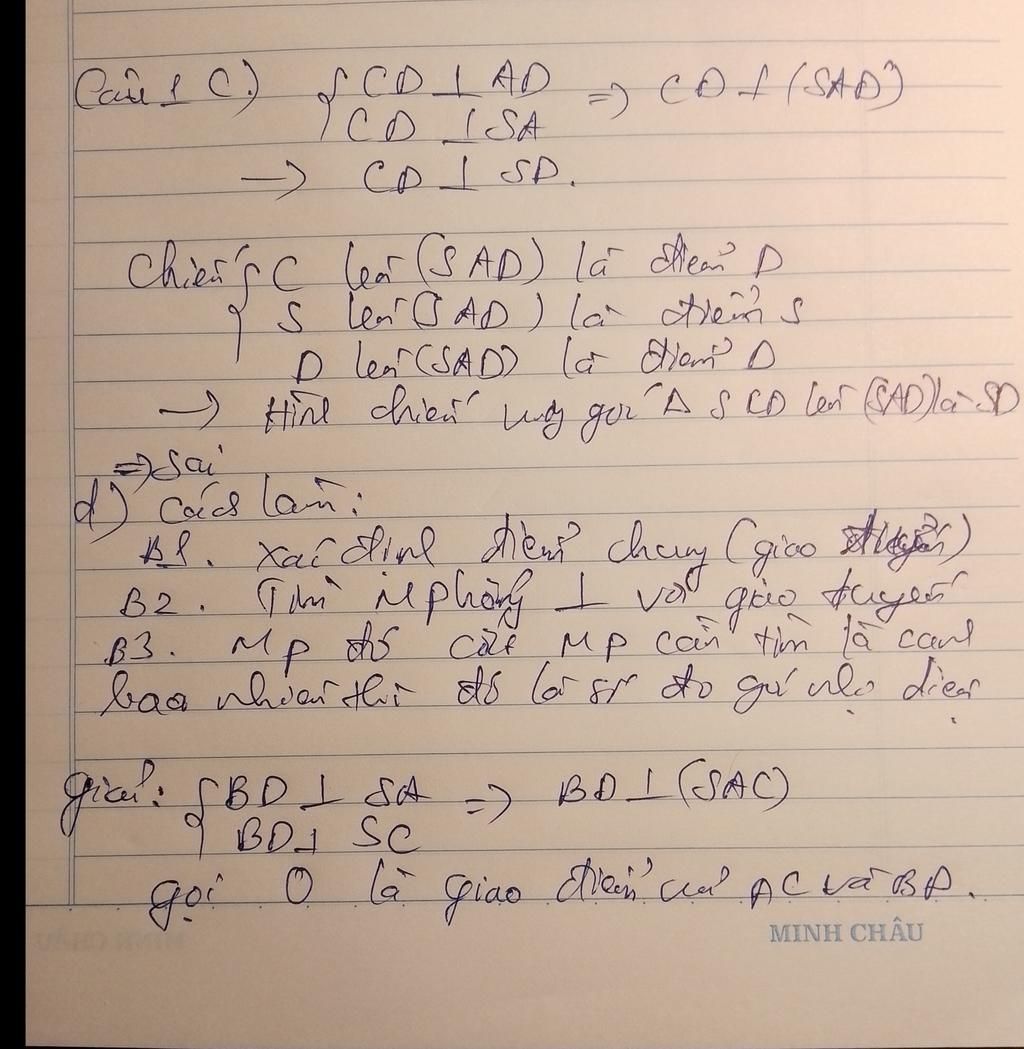 Câu 1 C.) { CD ⊥ AD => CD ⊥ (SAD)
CD ⊥ SA
→ CD ⊥ SD.
Chiếu { C lên (SAD) là điểm D
S lên (SAD) là điểm S
D lên (SAD) là điểm D
→ Hình chiếu của Δ SCD lên (SAD) là SD
=> Sai
d) Cách làm:
B1. Xác định điểm chung (giao tuyến)
B2. Tìm Mphẳng ⊥ với giao tuyến
B3. MP đó cắt MP cần tìm là
bao nhiêu thì đó là số đo góc nhị diện
giải: { BD ⊥ SA => BD ⊥ (SAC)
BD ⊥ SC
gọi O là giao điểm của AC và BD.
MINH CHÂU